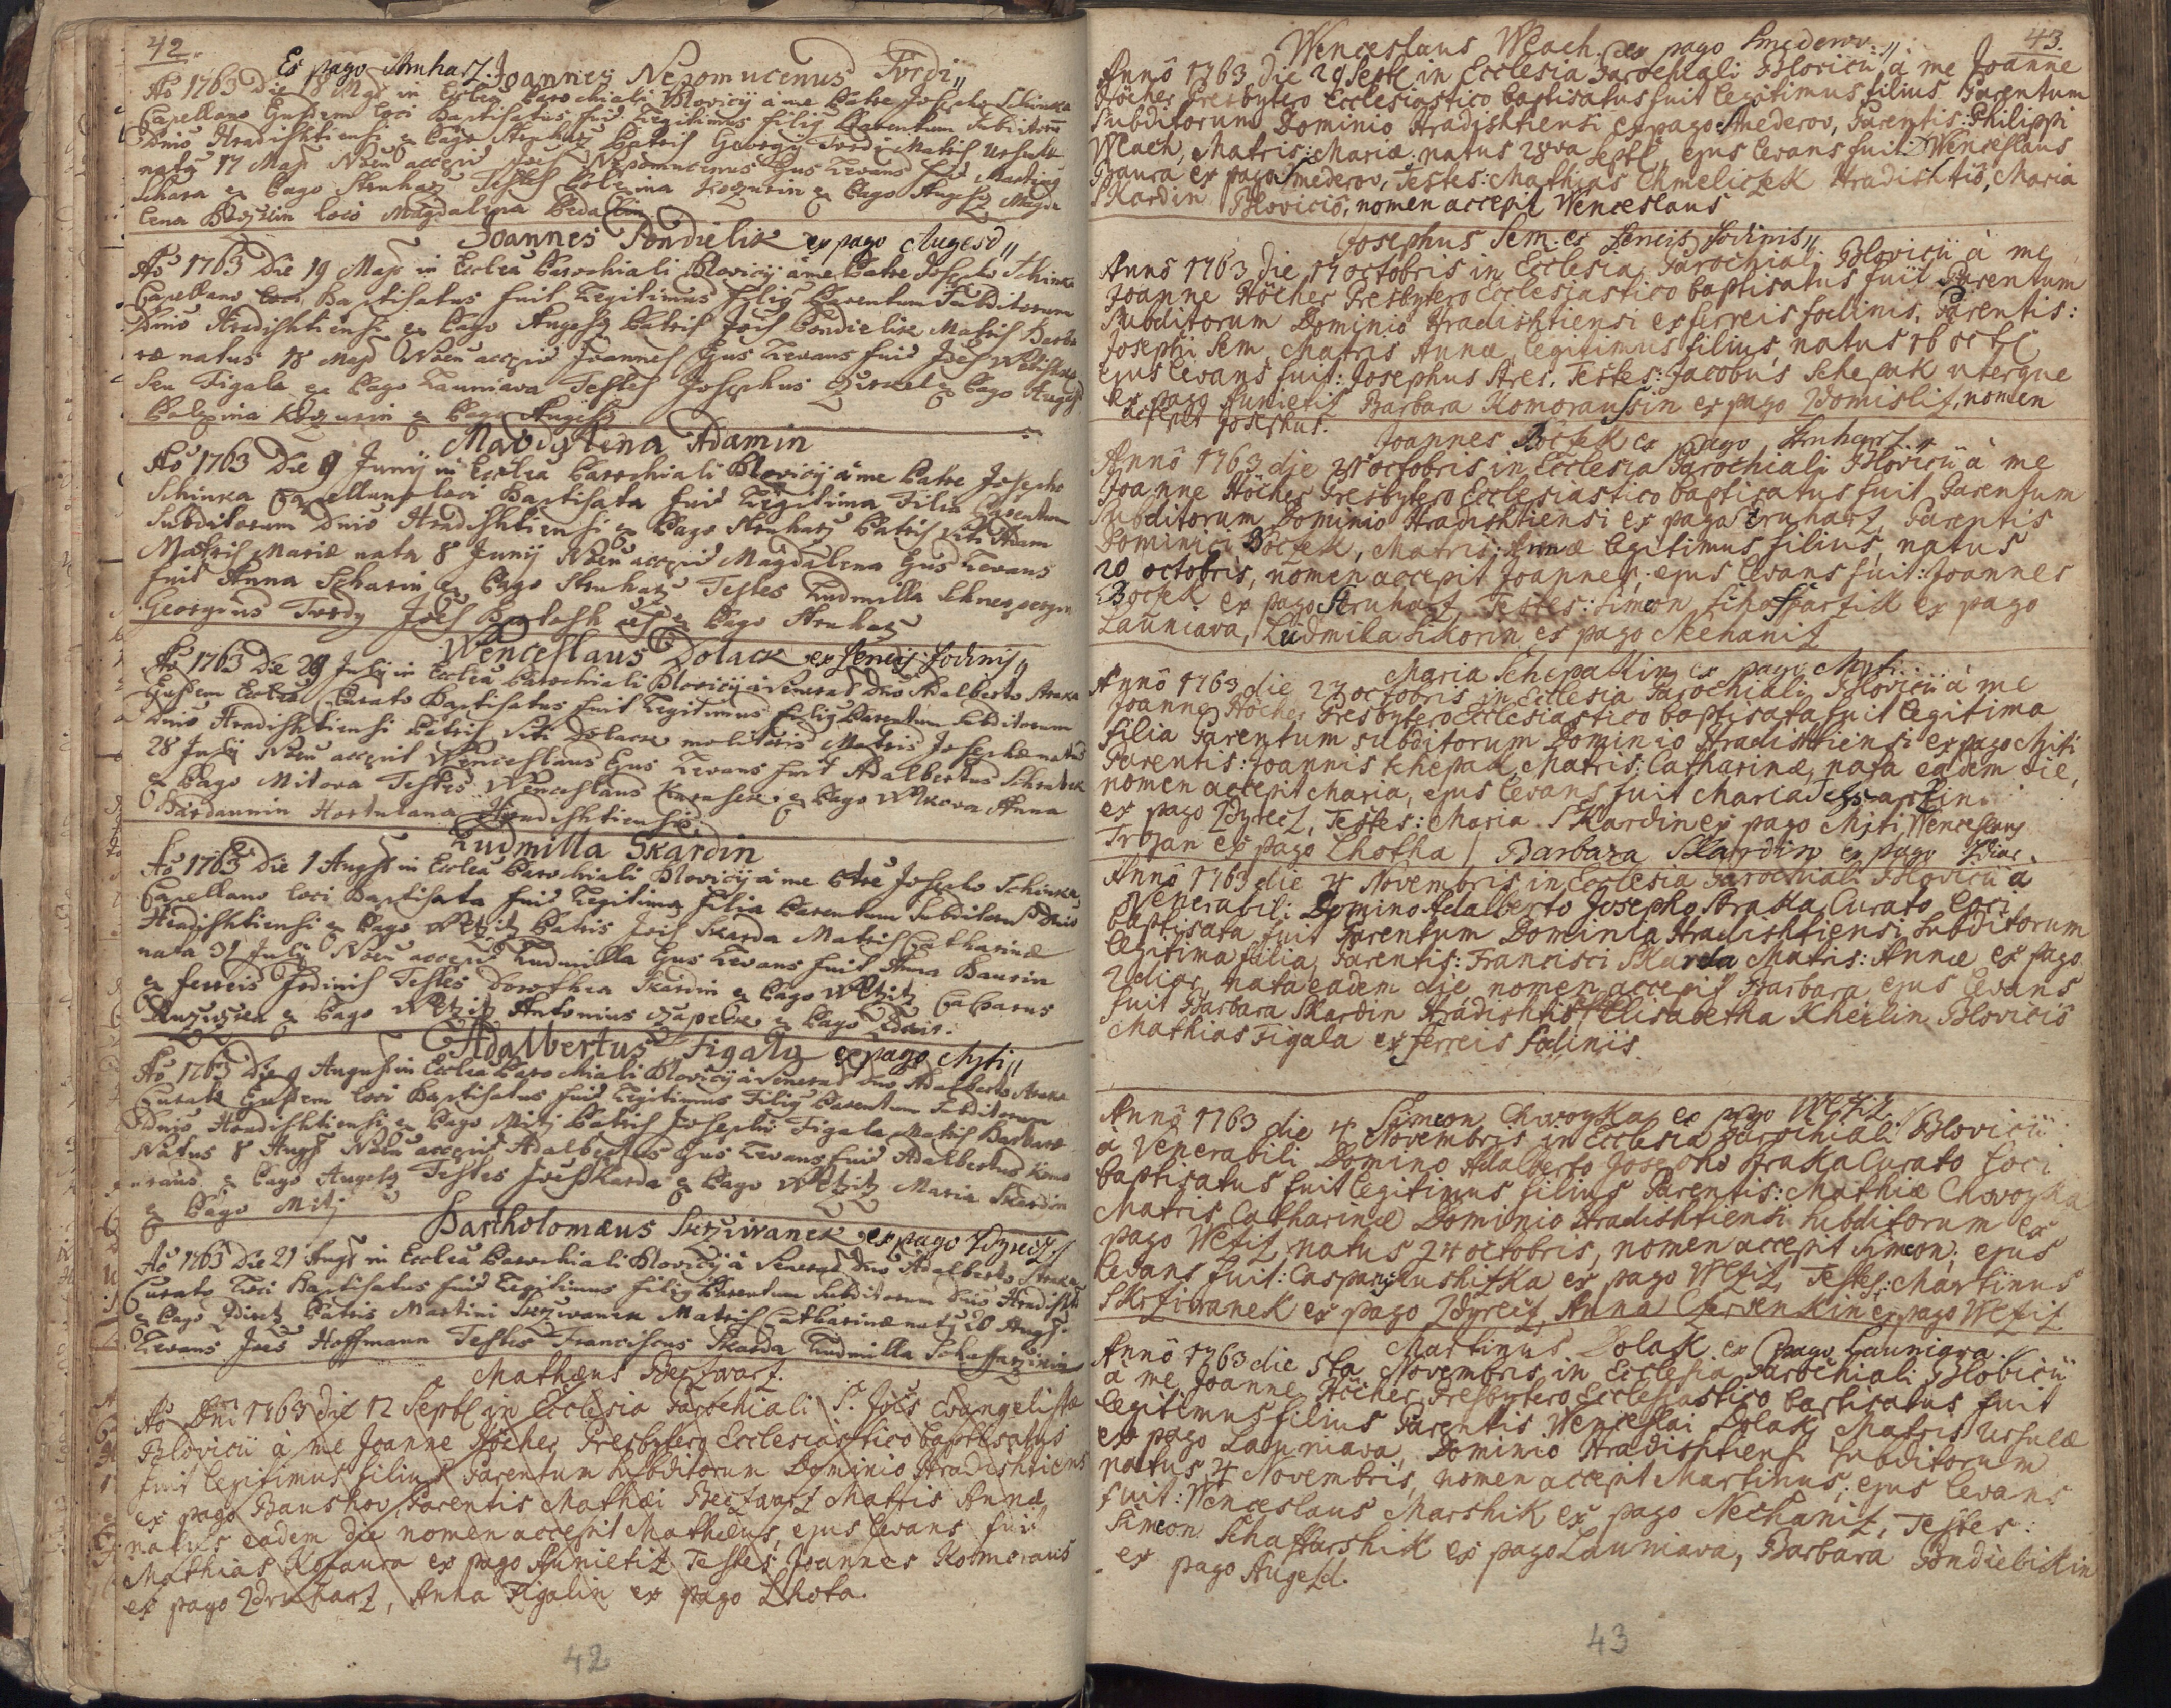 42.
Ex pago Struharz. Joannes Nepomucenus Tvrdi,,
Ao 1763 Die 18 Maji in Ecclesia Parochiali Blovicij à me Patre Josepho Schinka
Capellano Ejusdem loci Baptisatus fuit Legitimus Filius Parentum Subditorum
Dnio Hradishtiensi ex Pago Struharz Patris Georgij Tvrdi Matris Ursulae
natus 17 Maji Nomen accepit Joes Nepomucenus Ejus Levans fuit Martinus
Schara ex Pago Struharz Testes Polexina Kozurin ex Pago Augesz Magda
lena Blovicio loco Magdalena
Joannes Pondielik ex pago Augesd,,
Ao 1763 Die 19 Maji in Ecclesia Parochiali Blovicij à me Patre Josepho Schinka
Capellano loci Baptisatus fuit Legitimus Filius Parentum Subditorum
Dnio Hradishtiensi ex Pago Augesz Patris Jois Pondielik Matris Barba
rae natus 18 Maji Nomen accepit Joannes Ejus Levans fuit Joes
seu Figala ex Pago Launiava Testes Josephus ex Pago Augesz
Polexina Kozurin ex Pago Augesz
Magdalena Adamin
Ao 1763 Die 9 Junij in Ecclesia Parochiali Blovicij à me Patre Josepho
Schinka Capellano loci Baptisata fuit Legitima Filia Parentum
Subditorum Dnio Hradishtiensi ex Pago Struharz Patris Viti Adam
Matris Mariae nata 8 Junij Nomen accepit Magdalena Ejus Levans
fuit Anna Scharin ex Pago Struharz Testes Ludmilla
Georgius Tvrdy Joes ex Pago Struharz
Wenceslaus Dolack ex ferreis fodinis,,
Ao 1763 Die 29 Julij in Ecclesia Parochiali Blovicij à Venerab Dno Adalberto Straka
Ejusdem Ecclesiae Curato Baptisatus fuit Legitimus Filius Parentum Subditorum
Dnio Hradishtiensi Patris Viti Dolack molitoris Matris Josephae natus
28 Julij Nomen accepit Wenceslaus Ejus Levans fuit Adalbertus
ex Pago Mitova Testes Wenceslaus ex Pago Wlkova Anna
Hortulana Hradishtiensis
Ludmilla Skardin
Ao 1763 Die 1 Augst in Ecclesia Parochiali Blovicij à me Patre Josepho Schinka
Capellano loci Baptisata fuit Legitima Filia Parentum Subditorum Dnio
Hradishtiensi ex Pago Wlcziz Patris Jois Skarda Matris Catharinae
nata 31 Julij Nomen accepit Ludmilla Ejus Levans fuit Anna Baurin
ex ferreis fodinis Testes Dorothea Skardin ex Pago Wlcziz Casparus
ex Pago Wlcziz Antonius ex Pago Zdiar.
Adalbertus Figala ex pago Myti,,
Ao 1763 Die 9 August in Ecclesia Parochiali Blovicij à Venerab Dno Adalberto Straka
Curato Ejusdem loci Baptisatus fuit Legitimus Filius Parentum Subditorum
Dnio Hradishtiensi ex Pago Miti Patris Josephi Figala Matris Barbarae
Natus 8 Augst Nomen accepit Adalbertus Ejus Levans fuit Adalbertus Komo
rauss ex Pago Augesz Testes Joes Skarda ex Pago Wlcziz Maria Skardin
ex Pago Mitj
Bartholomaeus Skrziwanek ex pago Zdyretz,,
Ao 1763 Die 21 Augst in Ecclesia Parochiali Blovicij à Venerab Dno Adalberto Straka
Curato Loci Baptisatus fuit Legitimus Filius Parentum Subditorum Dnio Hradisht
ex Pago Zdiretz Patris Martini Skrziwanek Matris Catharinae natus 20 Augst.
Levans Joes Hoffmann Testes Franciscus Skarda Ludmilla Schaffarzikin
Mathaeus Beczwarz.
Ao Dni 1763 die 12 Septbl in Ecclesia Parochiali S. Jois Evangelistae
Blovicii à me Joanne Höcher Presbytero Ecclesiastico baptisatus
fuit legitimus filius Parentum subditorum Dominio Hradishtiens
ex pago Baushov, Parentis Mathaei Beczwarz Matris Annae
natus eadem die nomen accepit Mathaeus, ejus levans fuit
Mathias Kozaura ex pago Aunietiz Testes Joannes Komoraus
ex pago Zdruharz, Anna Figalin ex pago Lhota.
42
43.
Wenceslaus Wlach ex pago Smederov.,,
Anno 1763 die 29 Septl in Ecclesia Parochiali Blovicii à me Joanne
Höcher Presbytero Ecclesiastico baptisatus fuit legitimus filius Parentum
subditorum Dominio Hradishtiensi ex pago Smederov, Parentis: Philippi
Wlach, Matris: Mariae, natus 28va Septl, ejus levans fuit: Wenceslaus
Baura ex pago Smederov, Testes: Mathias Chmeliczek Hradishtio, Maria
Skardin Blovicio, nomen accepit Wenceslaus
Josephus Sem. ex ferreis fodinis,,
Anno 1763 die 17 octobris in Ecclesia Parochiali Blovicii à me
Joanne Höcher Presbytero Ecclesiastico baptisatus fuit Parentum
Subditorum Dominio Hradishtiensi ex ferreis fodinis, Parentis:
Josephi Sem, Matris Annae, legitimus filius, natus 16 octbl
ejus levans fuit: Josephus Ares, Testes: Jacobus Schepak uterque
ex pago Aunietiz Barbara Komoraussin ex pago Zdomisliz, nomen
accepit Josephus.
Joannes Boczek ex pago Struharz.,,
Anno 1763 die 21 octobris in Ecclesia Parochiali Blovicii à me
Joanne Höcher Presbytero Ecclesiastico baptisatus fuit Parentum
Subditorum Dominio Hradishtiensi ex pago Struharz, Parentis
Dominici Boczek, Matris: Annae legitimus filius, natus
20 octobris, nomen accepit Joannes, ejus levans fuit: Joannes
Boczek ex pago Struharz, Testes: Simeon Schaffarzik ex pago
Launiava, Ludmila Sikorin ex pago Nechaniz
Maria Schepakin ex pago Myti.
Anno 1763 die 27 octobris in Ecclesia Parochiali Blovicii à me
Joanne Höcher Presbytero Ecclesiastico baptisata fuit legitima
filia Parentum subditorum Dominio Hradishtiensi ex pago Miti
Parentis: Joannis Schepak, Matris: Catharinae, nata eadem die,
nomen accepit Maria, ejus levans fuit Maria
ex pago Zdyretz, Testes: Maria Skardin ex pago Miti, Wenceslaus
Trojan ex pago Lhotha / Barbara Skardin ex pago Zdiar.
Anno 1763 die 4 Novembris in Ecclesia Parochiali Blovicii à
Venerabili Domino Adalberto Josepho Straka Curato loci
baptisata fuit Parentum Dominia Hradishtiensi subditorum
legitima filia, Parentis: Francisci Skarda Matris: Annae ex pago
Zdiar, nata eadem die nomen accepit Barbara ejus levans
fuit Barbara Skardin Hradishtio Elisabetha Kheilin Blovicio
Mathias Figala ex ferreis fodinis.
Simeon Chwoyka ex pago Wlcziz
Anno 1763 die 4 Novembris in Ecclesia Parochiali Blovicii
a Venerabili Domino Adalberto Josepho Straka Curato loci
baptisatus fuit legitimus filius Parentis: Mathiae Chwoyka
Matris Catharinae Dominio Hradishtiensi subditorum ex
pago Wlcziz, natus 24 octobris, nomen accepit Simeon; ejus
levans fuit: Casparus Rushitzka ex pago Wlcziz, Testes: Martinus
Skrziwanek ex pago Zdyretz, Anna Czervenkin ex pago Wlcziz
Martinus Dolak ex pago Launiova.
Anno 1763 die 5ta Novembris in Ecclesia Parochiali Blobicii
à me Joanne Höcher Presbytero Ecclesiastico baptisatus fuit
legitimus filius Parentis Wenceslai Dolak, Matris Ursulae
ex pago Launiava, Dominio Hradishtiensi subditorum
natus 4 Novembris, nomen accepit Martinus, ejus levans
fuit: Wenceslaus Marshik ex pago Nechaniz, Testes:
Simeon Schaffarshik ex pago Launiava, Barbara Pondielikin
ex pago Augezd.
43